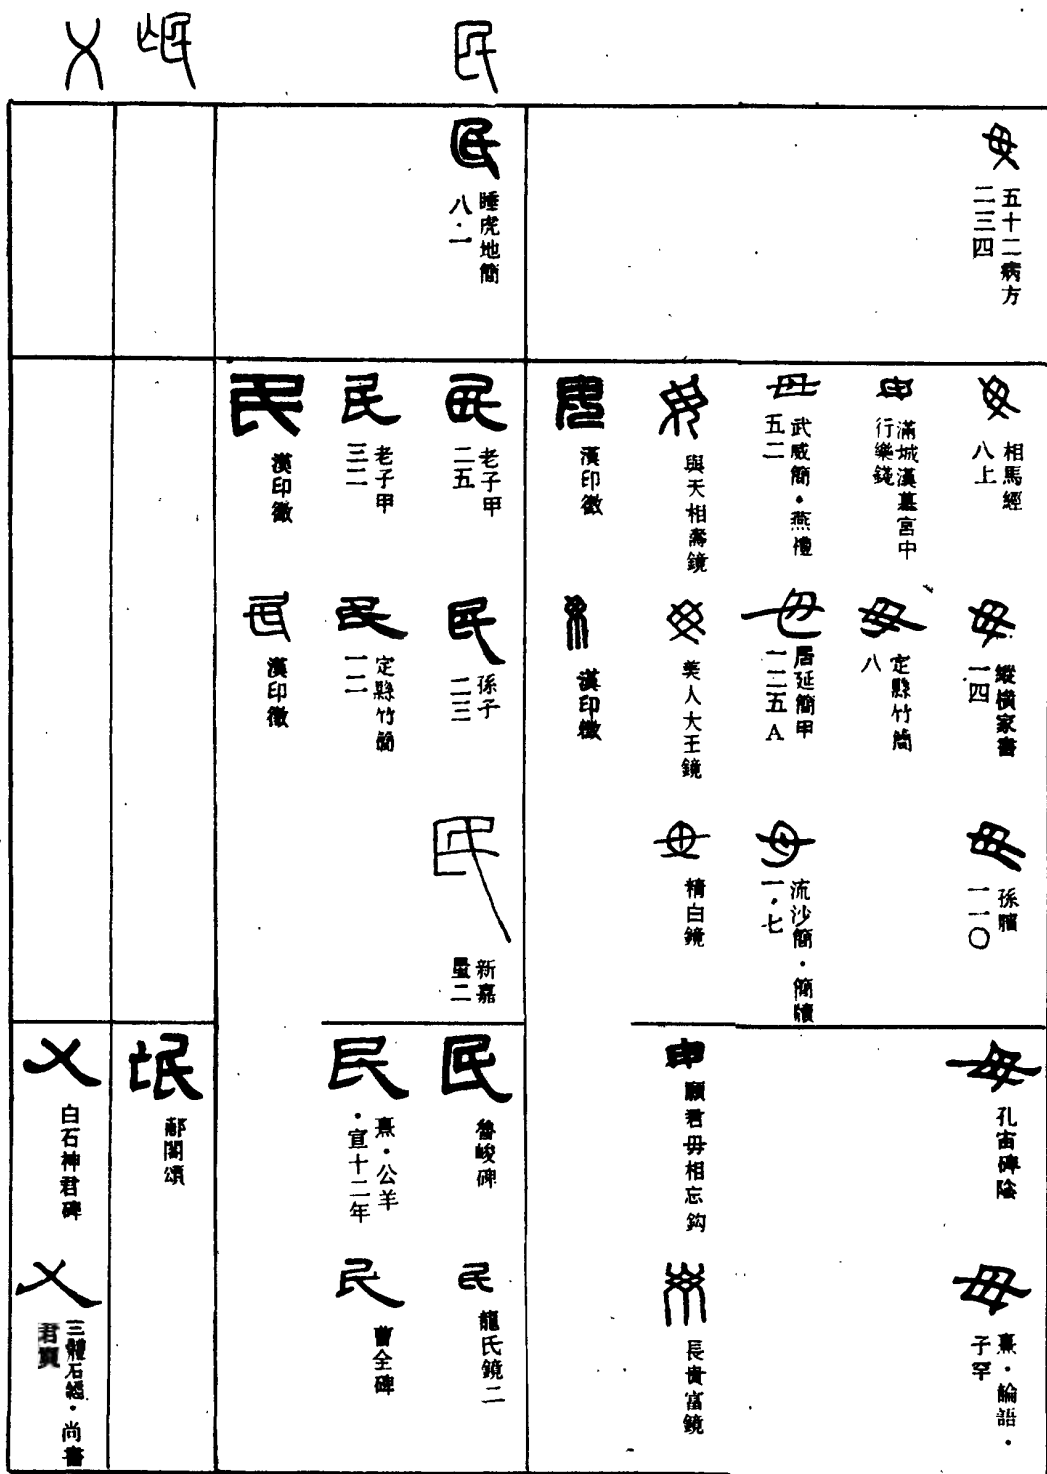 民
氓
乂
毋
五十二病方
二三四
毋
相馬經
八上
毋
縱橫家書
一四
毋
孫臏
一一〇
毋
滿城漢墓宮中
行樂錢
毋
定縣竹簡
八
毋
武威簡·燕禮
五二
毋
居延簡甲
一二五A
毋
流沙簡·簡牘
一·七
毋
與天相壽鏡
毋
美人大王鏡
毋
精白鏡
毋
漢印徵
毋
漢印徵
毋
孔宙碑陰
毋
熹·論語·
子罕
毋
願君毋相忘鈎
毋
長貴富鏡
民
睡虎地簡
八·一
民
老子甲
二五
民
孫子
二三
民
新嘉
量二
民
老子甲
三二
民
定縣竹簡
一二
民
漢印徵
民
漢印徵
民
魯峻碑
民
龍氏鏡二
民
熹·公羊
·宣十二年
民
曹全碑
氓
郙閣頌
乂
白石神君碑
乂
三體石經·尚書
君奭